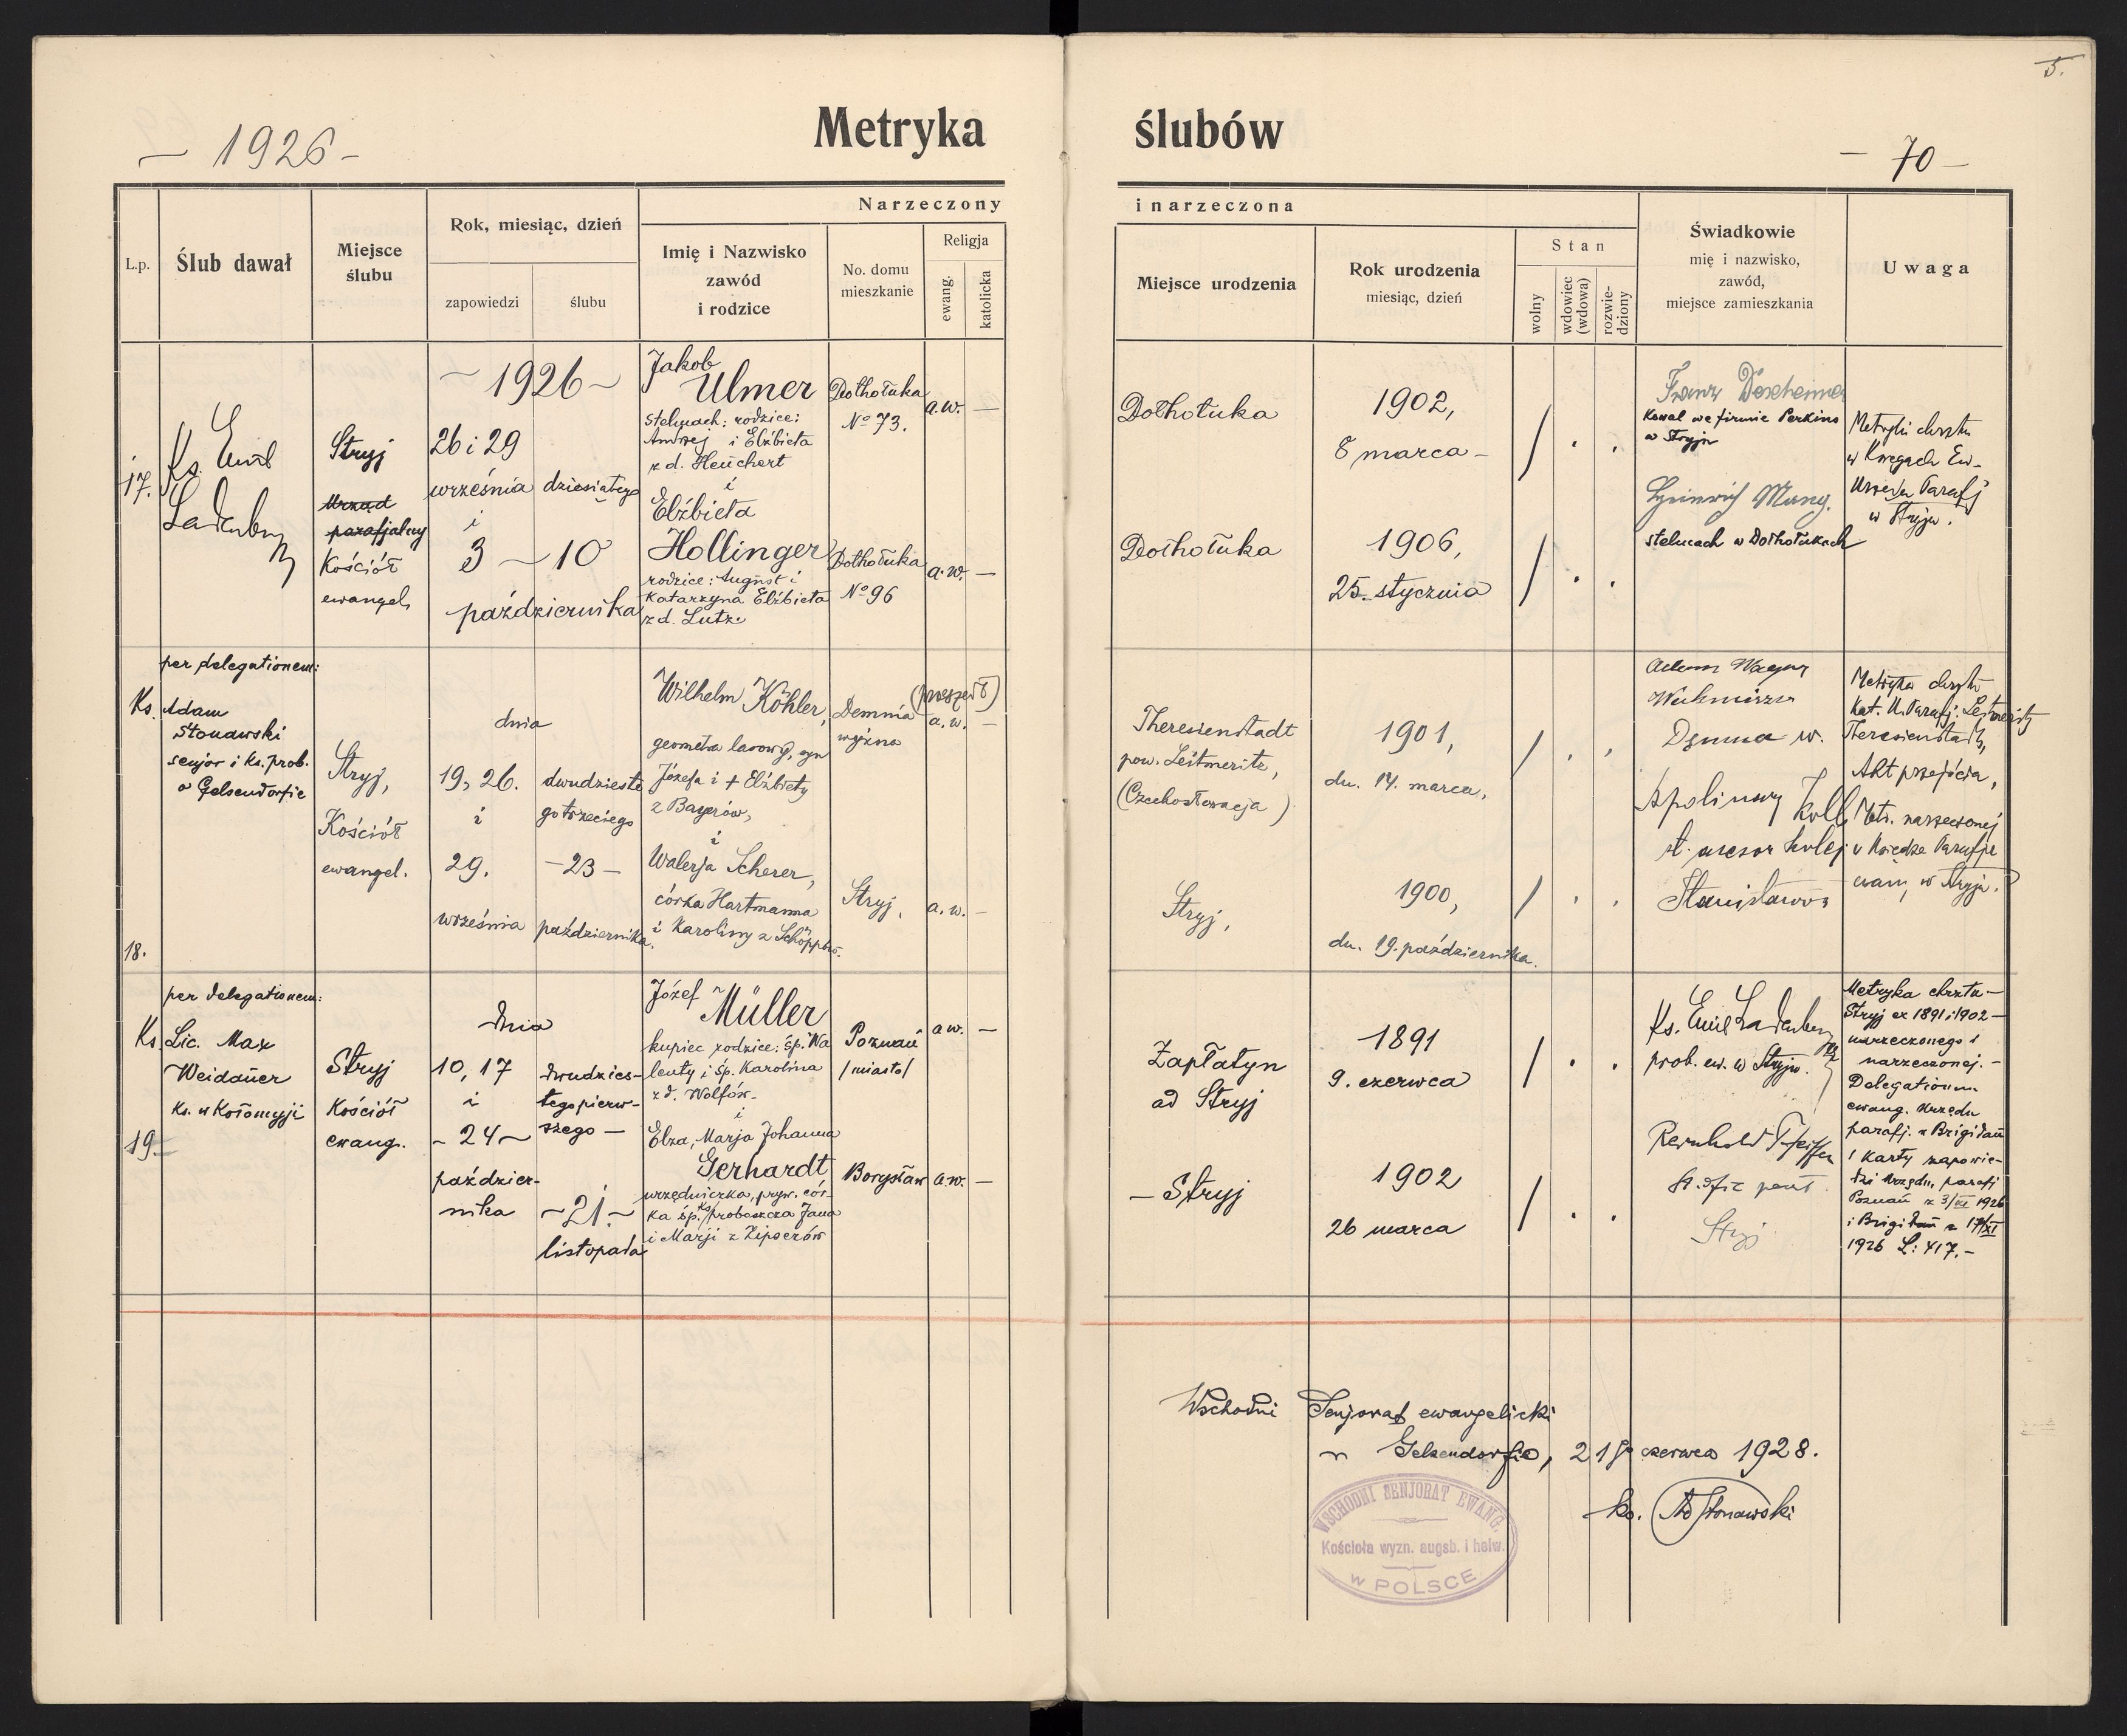 5.
Metryka ślubów
– 1926 –
– 70 –
Narzeczony i narzeczona
L.p.
Ślub dawał
Miejsce
ślubu
Rok, miesiąc, dzień
zapowiedzi
ślubu
Imię i Nazwisko
zawód
i rodzice
No. domu
mieszkanie
Religja
ewang.
katolicka
Miejsce urodzenia
Rok urodzenia
miesiąc, dzień
Stan
wolny
wdowiec
(wdowa)
rozwie-
dziony
Świadkowie
mię i nazwisko,
zawód,
miejsce zamieszkania
Uwaga
17.
Ks. Emil
Ladenberger
Stryj
Urząd
parafjalny
Kościół
ewangel.
– 1926 –
26 i 29
września
i
3
dziesiątego
– 10
października
Jakob
Ulmer
stelmach; rodzice:
Andrzej i Elżbieta
z d. Heuchert
i
Elżbieta
Hollinger
rodzice: August i
Katarzyna Elżbieta
z d. Lutz.
Dołhołuka
No 73.
a.w. –
Dołhołuka
No 96
a.w. –
Dołhołuka
1902,
8 marca –
/ . .
Dołhołuka
1906,
25. stycznia
/ . .
Franz
Kowal we firmie Perkins
w Stryju
Heinrich Mang.
stelmach w Dołhołukach
Metryki chrztu
w Księgach Ew.
Urzędu Parafj
w Stryju.
18.
per delegationem:
Ks. Adam
Stonawski
senjor i ks. prob.
w Gelsendorfie
Stryj,
Kościół
ewangel.
dnia
19, 26.
i
29.
września
dwudzieste
go trzeciego
– 23 –
października.
Wilhelm Köhler,
geometra lasowy, syn
Józefa i + Elżbiety
z Bayerów,
i
Walerja Scherer,
córka Hartmanna
i Karoliny z
Demnia
wyżna
(przeszedł)
a.w. –
Stryj,
a.w. –
Theresienstadt
pow. Leitmeritz,
(Czechosłowacja)
1901,
dn. 14. marca,
/ . .
Stryj,
1900,
dn. 19. października.
/ . .
Adam Wagner
Demnia w.
Apolinary Koll
st. asesor kolej
Stanisławów
Metryka chrztu
kat. U. Parafj: Leitmeritz
Theresienstadt,
Akt przejścia,
Metr. narzeczonej
w Księdze Parafji
ewang. w Stryju.
19.
per delegationem:
Ks. Lic. Max
Weidauer
ks. w Kołomyji
Stryj
Kościół
ewang.
dnia
10, 17
i
– 24 –
paździer-
nika
dwudzies-
tego pierw-
szego –
– 21. –
listopada
Józef
Müller
kupiec rodzice: śp. Wa
lenty i śp. Karolina
z d. Wolfów.
i
Elza, Marja Johanna
Gerhardt
urzędniczka, pryw. cór-
ka śp. ks. proboszcza Jana
i Marji z Zipserów
Poznań
/miasto/
a w. –
Borysław
a.w. –
Zapłatyn
ad Stryj
1891
9. czerwca
/ . .
– Stryj
1902
26 marca
/ . .
Ks. Emil Ladenberger
prob. ew. w Stryju.
Reinhold Pfeiffer
Stryj
Metryka chrztu –
Stryj ex 1891 i 1902 –
narzeczonego i
narzeczonej. –
Delegationem
ewang. Urzędu
parafj. w Brigidau
i Karty zapowie-
dzi Urzędu parafj
Poznań z 3/XI 1926
i Brigidau z 17/XI
1926 L: 417. –
Wschodni Senjorat ewangelicki
w Gelsendorfie, 21go czerwca 1928.
ks. Ad Stonawski
WSCHODNI SENJORAT EWANG.
Kościoła wyzn. augsb. i helw.
W POLSCE